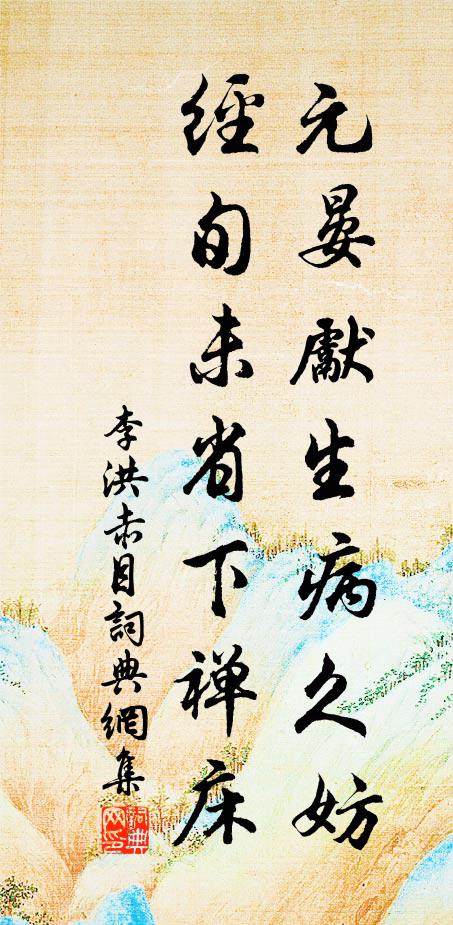 元晏獻生病久妨
經旬未省下禅床
李洪赤目詞典網集
詞典網印